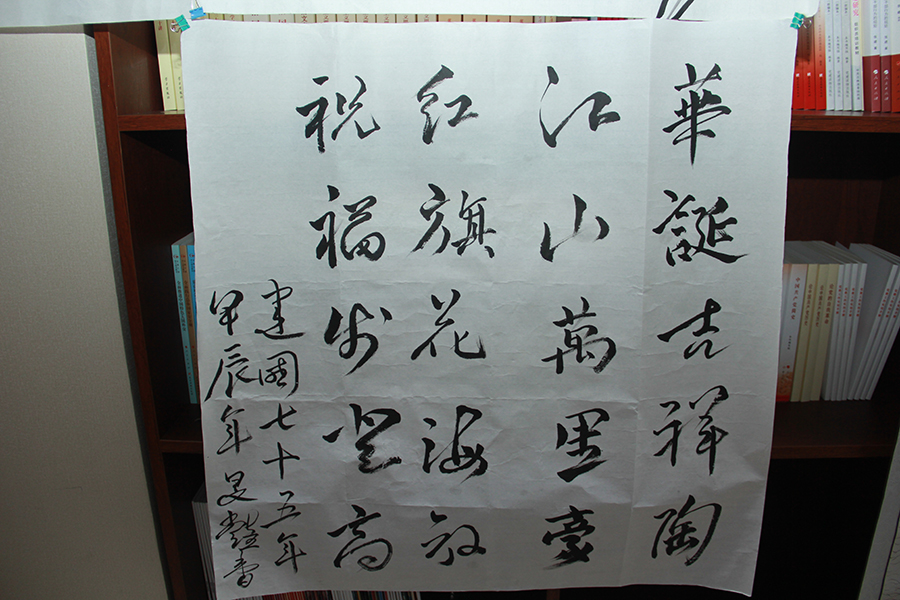 華誕吉祥陶
江山萬里豪
红旗花海放
祝福步登高
建國七十五年
甲辰年書